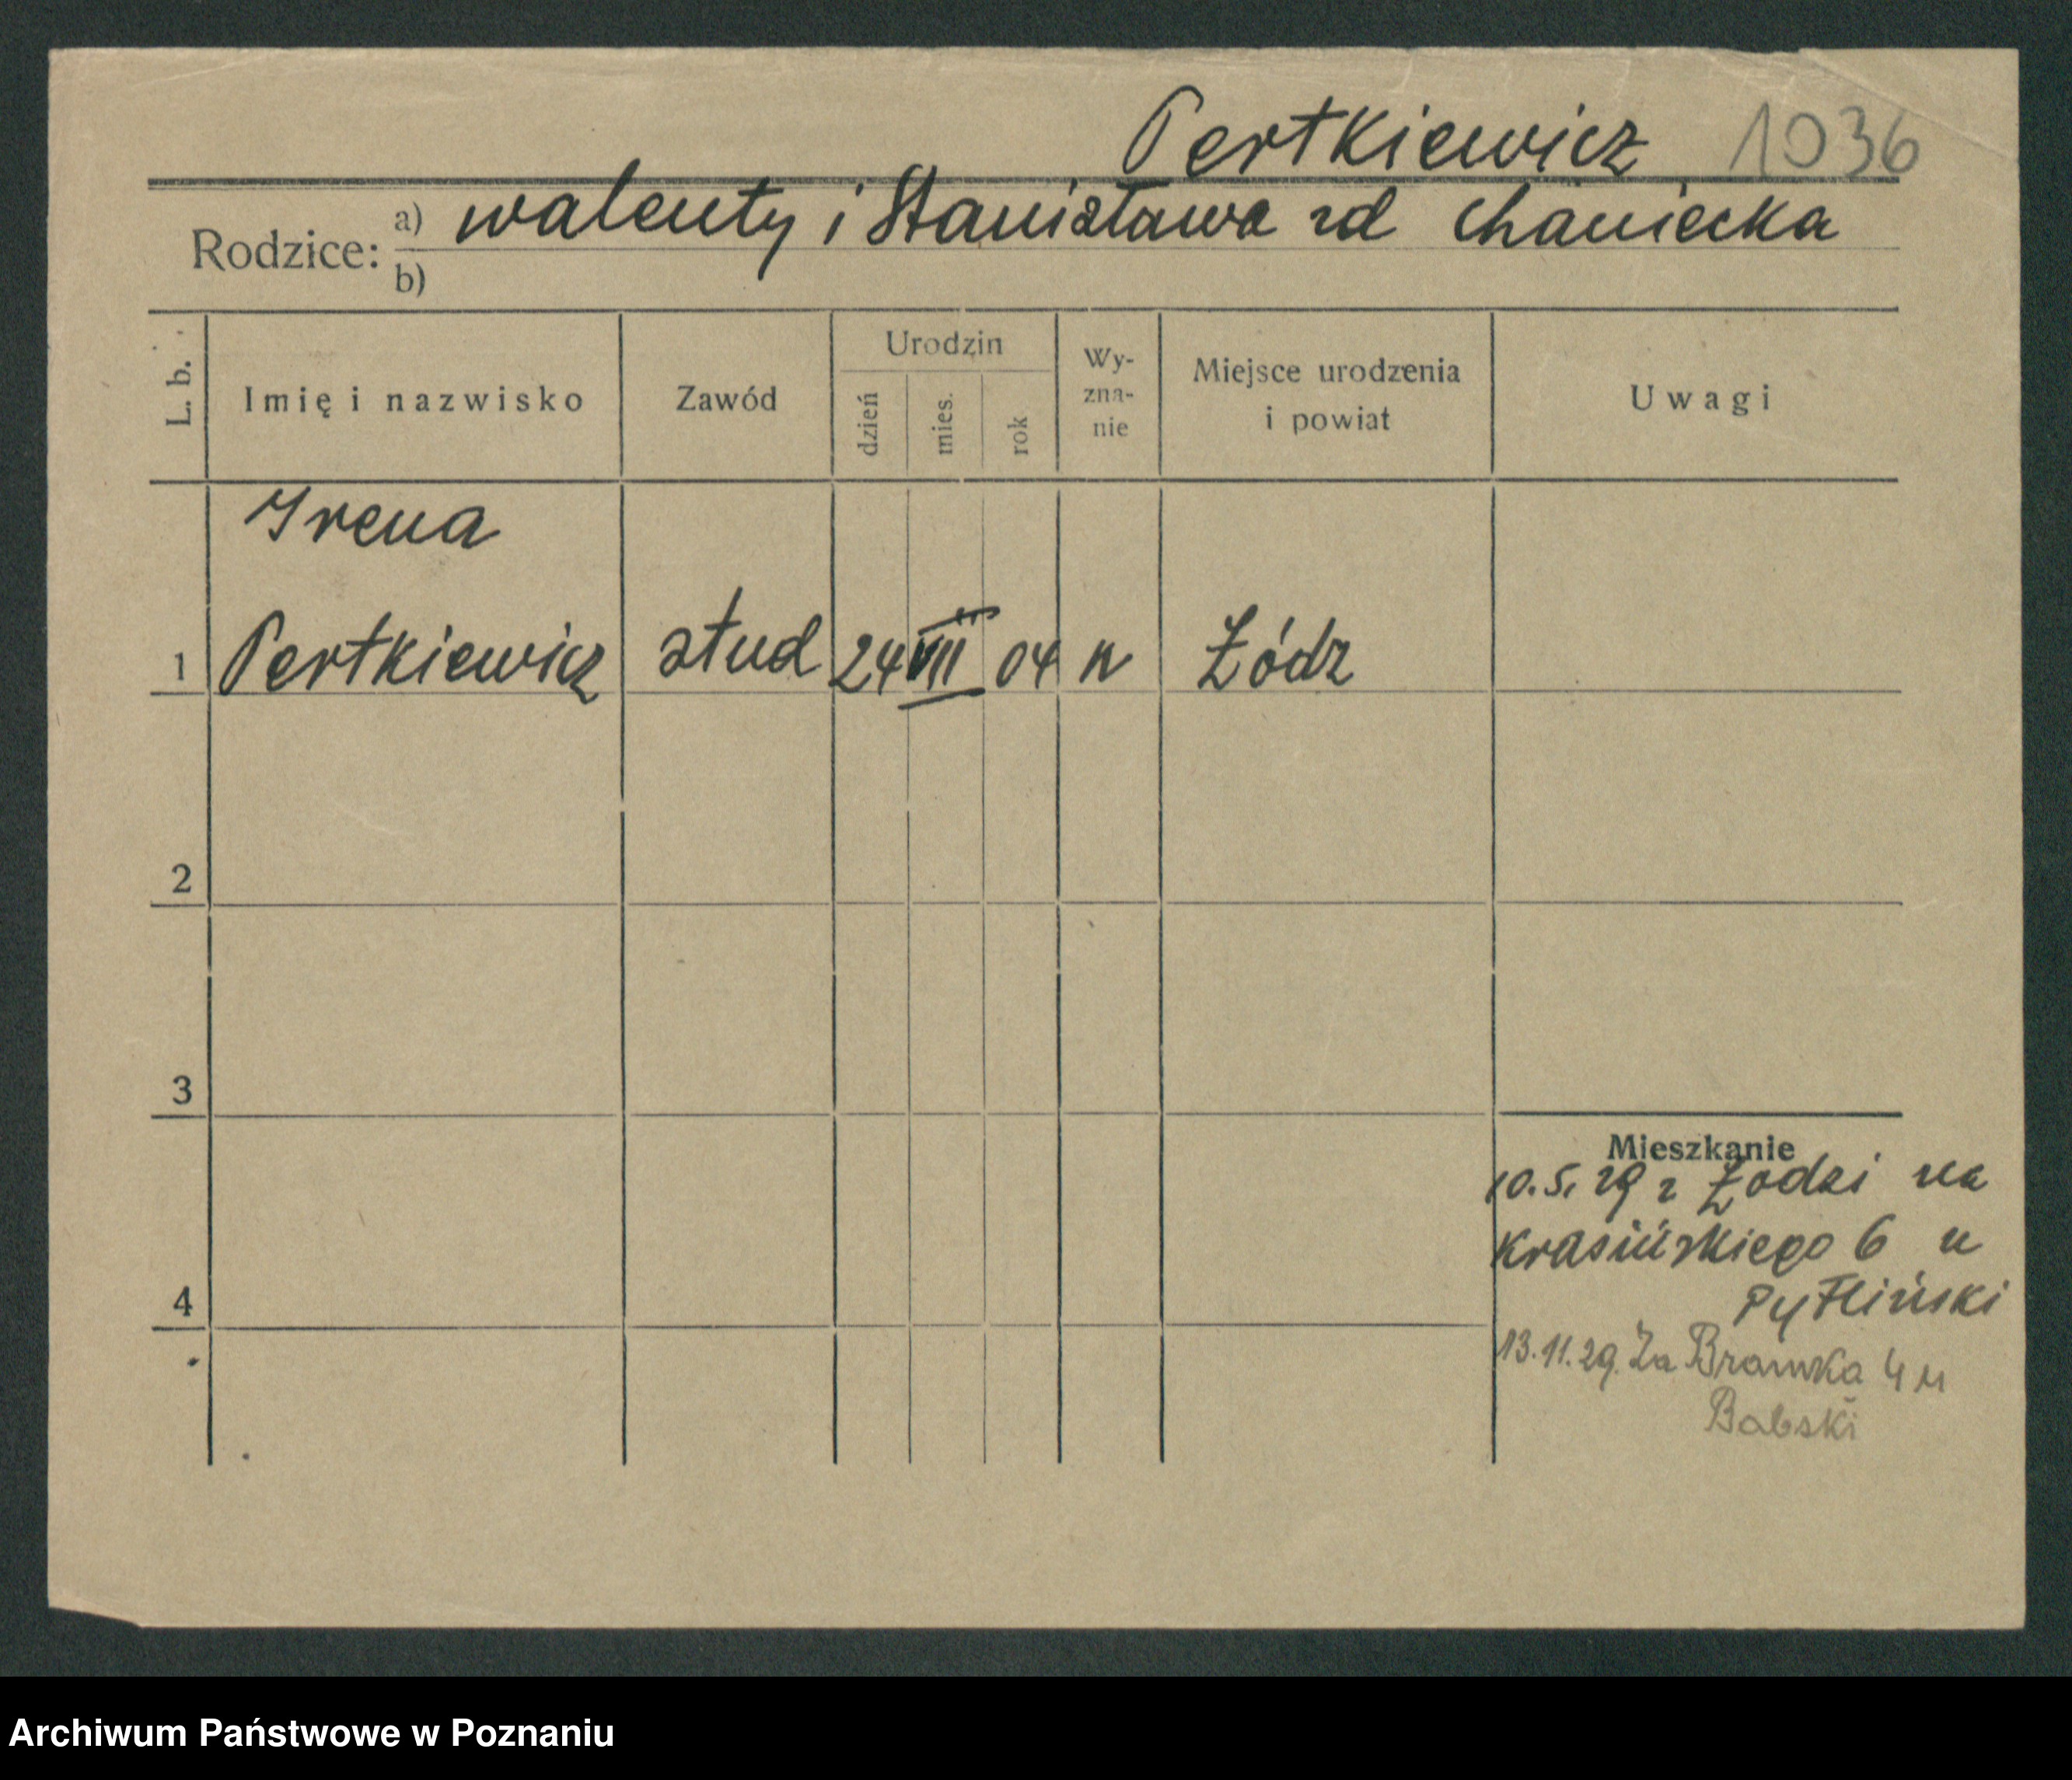 Pertkiewicz 1036
Rodzice: a) Walenty i Stanisława zd Chaniecka
b)
L. b.
Imię i nazwisko
Zawód
Urodzin
dzień
mies.
rok
Wy-
zna-
nie
Miejsce urodzenia
i powiat
Uwagi
Irena
1 Pertkiewicz stud 24 VIII 04 Łódz
2
3
4
Mieszkanie
10.5.29 z Łodzi na
Krasińskiego 6 u
Pytliński
13.11.29. Za Bramka 4 u
Babski
Archiwum Państwowe w Poznaniu